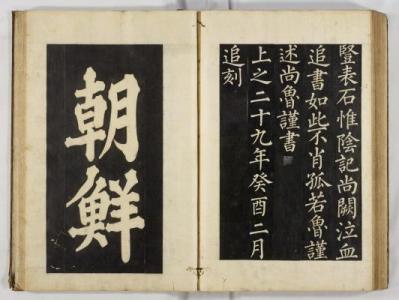 豎表石惟陰記尚闕泣血
追書如此不肖孤若魯謹
述尚魯謹書
上之二十九年癸酉二月
追刻
朝鮮